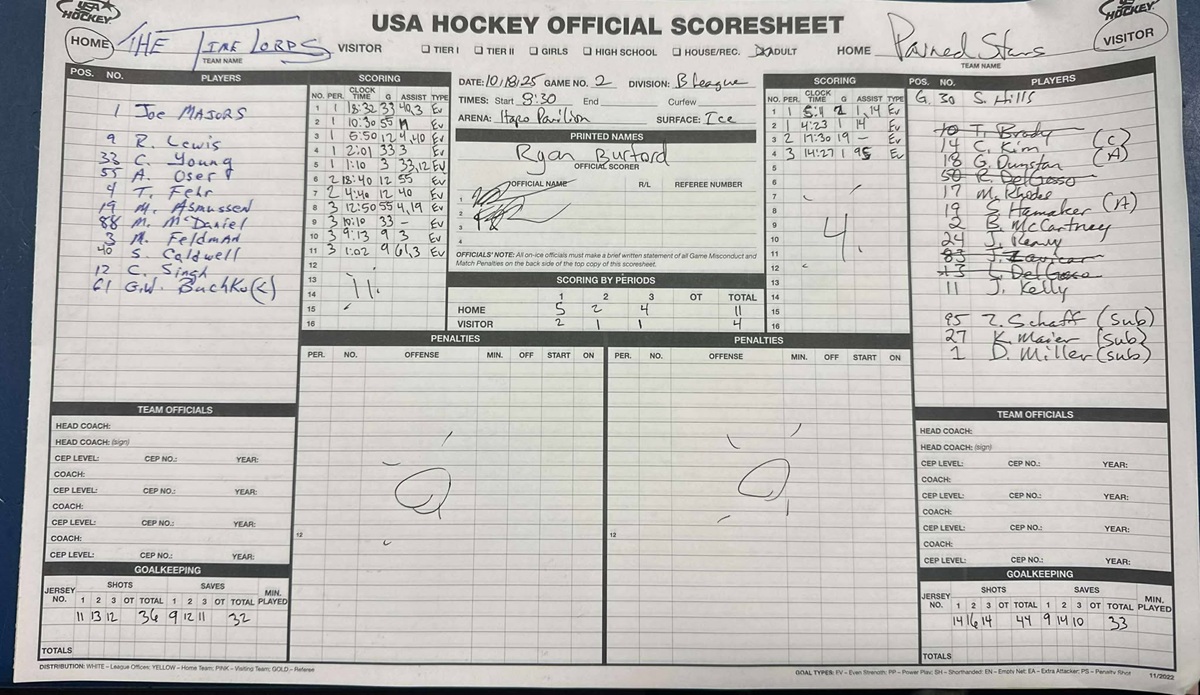 USA HOCKEY
USA HOCKEY OFFICIAL SCORESHEET
HOCKEY
HOME THE TIME LORDS VISITOR ☐ TIER I ☐ TIER II ☐ GIRLS ☐ HIGH SCHOOL ☐ HOUSE/REC. ☒ ADULT HOME Pained Stars VISITOR
TEAM NAME
TEAM NAME
POS. NO. PLAYERS
1 JOE MAJORS
9 R. Lewis
33 C. Young
55 A. Osert
4 T. Fehr
19 M. Asmussen
88 M. McDaniel
3 A. Feldman
40 S. Caldwell
12 C. Singh
61 G.W. Buchko (C)
SCORING
NO. PER. CLOCK TIME G ASSIST TYPE
1 1 18:32 33 40,3 Ev
2 1 10:30 55 Ev
3 1 5:50 12 4,40 Ev
4 1 2:01 33 3 Ev
5 1 1:10 3 33,12 Ev
6 2 18:40 12 55 Ev
7 2 4:40 12 40 Ev
8 3 12:50 55 4,19 Ev
9 3 10:10 33 - Ev
10 3 9:13 9 3 Ev
11 3 1:02 9 61,3 Ev
12
13
14 11
15
16
DATE: 10/18/25 GAME NO. 2 DIVISION: B League
TIMES: Start 8:30 End Curfew
ARENA: Hapo Pavilion SURFACE: Ice
PRINTED NAMES
Ryan Burford
OFFICIAL SCORER
OFFICIAL NAME R/L REFEREE NUMBER
1
2
3
4
OFFICIALS' NOTE: All on-ice officials must make a brief written statement of all Game Misconduct and
Match Penalties on the back side of the top copy of this scoresheet.
SCORING BY PERIODS
1 2 3 OT TOTAL
HOME 5 2 4 11
VISITOR 2 1 1 4
SCORING
NO. PER. CLOCK TIME G ASSIST TYPE
1 1 5:11 2 1,14 Ev
2 1 4:23 1 14 Ev
3 2 17:30 19 - Ev
4 3 14:27 1 95 Ev
5
6
7
8
9 4
10
11
12
13
14
15
16
POS. NO. PLAYERS
G 30 S. Hills
10 T. Brady
14 C. Kim (C)
18 G. Dunstan (A)
50 R. DelGesso
17 M. Rhodes
19 S. Hamaker (A)
2 B. McCartney
24 J. Kenny
83 J. Zavicar
13 L. DelGesso
11 J. Kelly
95 Z. Schaff (sub)
27 K. Maier (sub)
1 D. Miller (sub)
PENALTIES
PER. NO. OFFENSE MIN. OFF START ON
0
12
PENALTIES
PER. NO. OFFENSE MIN. OFF START ON
0
12
TEAM OFFICIALS
HEAD COACH:
HEAD COACH: (sign)
CEP LEVEL: CEP NO.: YEAR:
COACH:
CEP LEVEL: CEP NO.: YEAR:
COACH:
CEP LEVEL: CEP NO.: YEAR:
COACH:
CEP LEVEL: CEP NO.: YEAR:
GOALKEEPING
JERSEY NO. SHOTS SAVES MIN. PLAYED
1 2 3 OT TOTAL 1 2 3 OT TOTAL
11 13 12 36 9 12 11 32
TOTALS
TEAM OFFICIALS
HEAD COACH:
HEAD COACH: (sign)
CEP LEVEL: CEP NO.: YEAR:
COACH:
CEP LEVEL: CEP NO.: YEAR:
COACH:
CEP LEVEL: CEP NO.: YEAR:
COACH:
CEP LEVEL: CEP NO.: YEAR:
GOALKEEPING
JERSEY NO. SHOTS SAVES MIN. PLAYED
1 2 3 OT TOTAL 1 2 3 OT TOTAL
14 16 14 44 9 14 10 33
TOTALS
DISTRIBUTION: WHITE – League Offices; YELLOW – Home Team; PINK – Visiting Team; GOLD – Referee
GOAL TYPES: EV – Even Strength; PP – Power Play; SH – Shorthanded; EN – Empty Net; EA – Extra Attacker; PS – Penalty Shot 11/2022